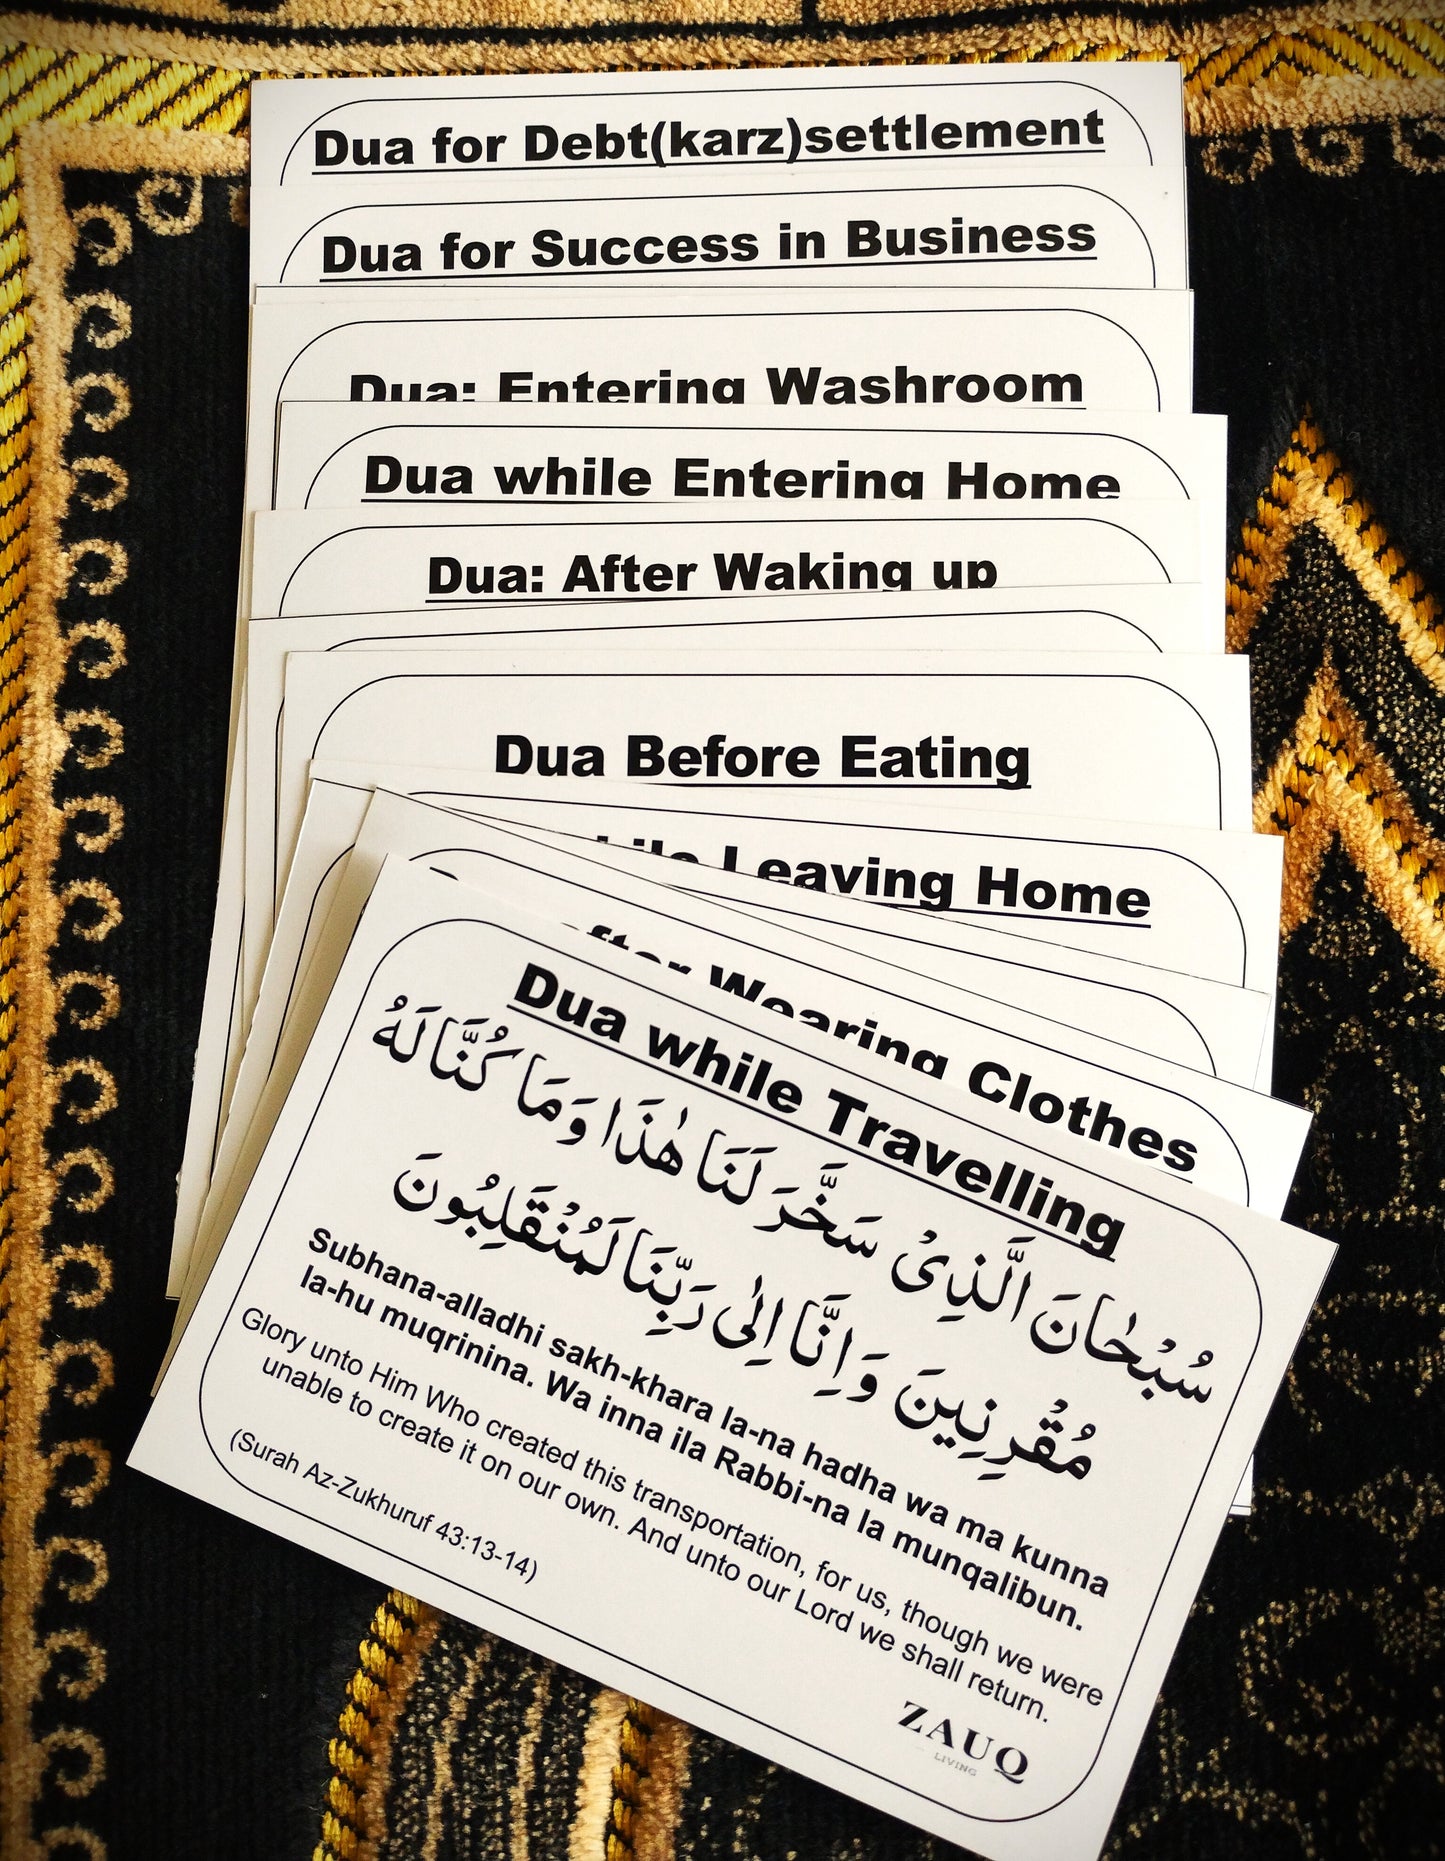 Dua for Debt(karz)settlement
Dua for Success in Business
Dua: Entering Washroom
Dua while Entering Home
Dua: After Waking up
Dua Before Eating
Leaving Home
Wearing Clothes
Dua while Travelling
سُبْحَانَ الَّذِىْ سَخَّرَ لَنَا هٰذَا وَمَا كُنَّا لَهُ
مُقْرِنِينَ وَاِنَّا اِلٰى رَبِّنَا لَمُنْقَلِبُونَ
Subhana-alladhi sakh-khara la-na hadha wa ma kunna
la-hu muqrinina. Wa inna ila Rabbi-na la munqalibun.
Glory unto Him Who created this transportation, for us, though we were
unable to create it on our own. And unto our Lord we shall return.
(Surah Az-Zukhuruf 43:13-14)
ZAUQ
LIVING